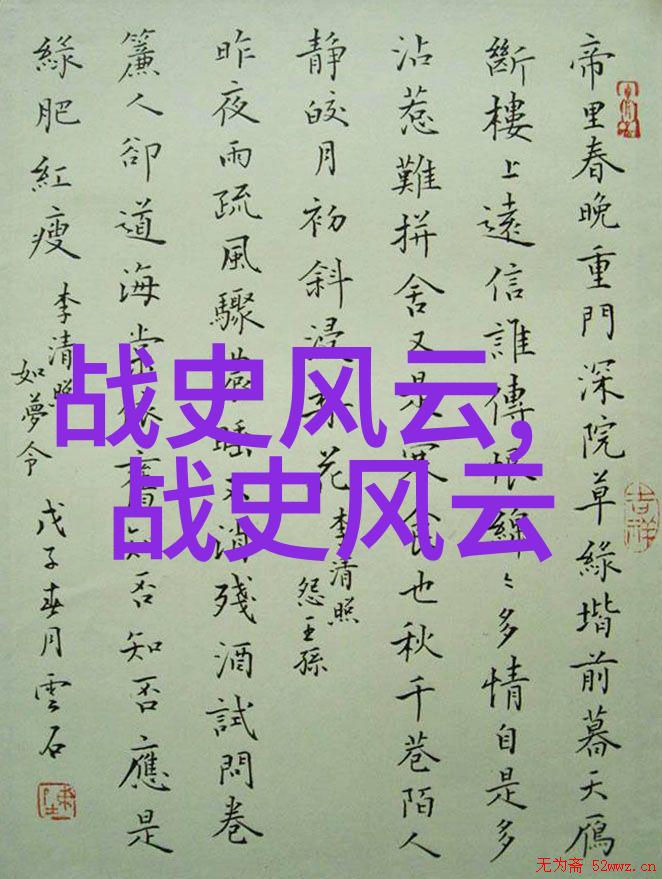 帝里春晚重門深院草綠堦前暮天鴈
斷樓上遠信誰傳恨綿〻多情自是多
沾惹難拼舍又是寒食也秋千巷陌人
静皎月初斜浸梨花
李清照
怨王孫
昨夜雨疏風驟濃睡不消殘酒試問卷
簾人卻道海棠依舊知否知否應是
綠肥紅瘦
李清照
如夢令
戊子春月雲石
吉祥
战史风云,
战史风云
无为斋 52wwz.cn